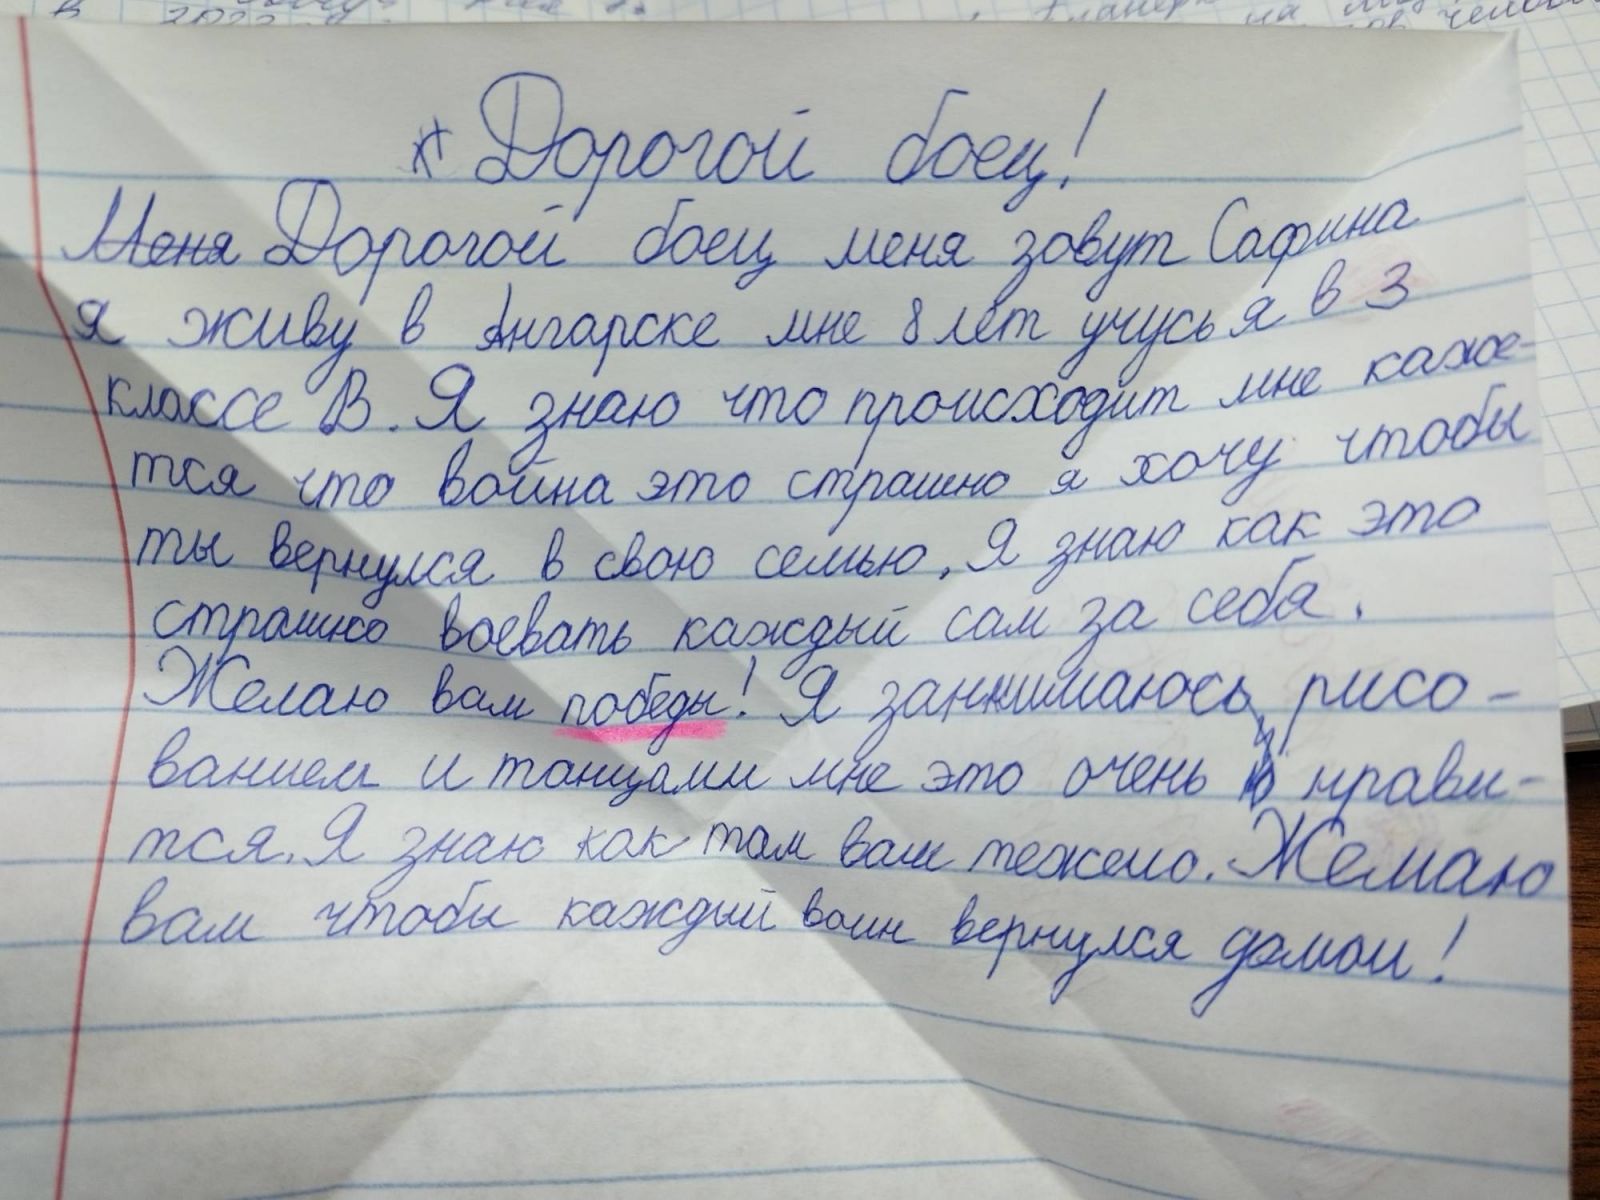 Дорогой боец!
Меня Дорогой боец меня зовут Сафина
я живу в Ангарске мне 8 лет учусь я в 3
классе В. Я знаю что происходит мне каже-
тся что война это страшно я хочу чтобы
ты вернулся в свою семью, Я знаю как это
страшно воевать каждый сам за себя.
Желаю вам победы! Я занимаюсь рисо-
ванием и танцами мне это очень нрави-
тся. Я знаю как там вам тежело. Желаю
вам чтобы каждый воин вернулся домои!